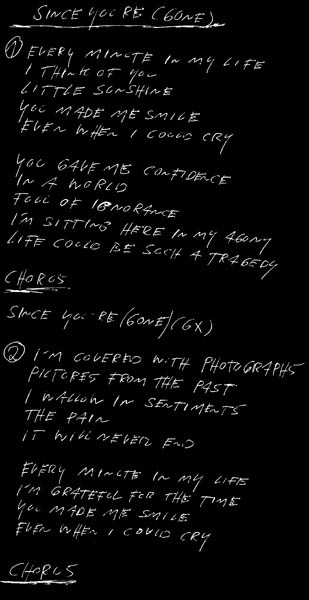 SINCE YOU'RE (GONE)
① EVERY MINUTE IN MY LIFE
I THINK OF YOU
LITTLE SUNSHINE
YOU MADE ME SMILE
EVEN WHEN I COULD CRY
YOU GAVE ME CONFIDENCE
IN A WORLD
FULL OF IGNORANCE
I'M SITTING HERE IN MY AGONY
LIFE COULD BE SUCH A TRAGEDY
CHORUS
SINCE YOU'RE (GONE) (6X)
② I'M COVERED WITH PHOTOGRAPHS
PICTURES FROM THE PAST
I WALLOW IN SENTIMENTS
THE PAIN
IT WILL NEVER END
EVERY MINUTE IN MY LIFE
I'M GRATEFUL FOR THE TIME
YOU MADE ME SMILE
EVEN WHEN I COULD CRY
CHORUS